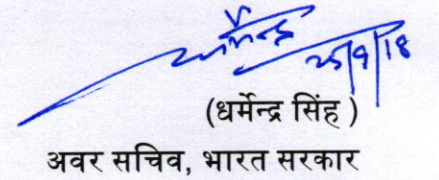 धर्मेन्द्र
25/9/18
(धर्मेन्द्र सिंह )
अवर सचिव, भारत सरकार